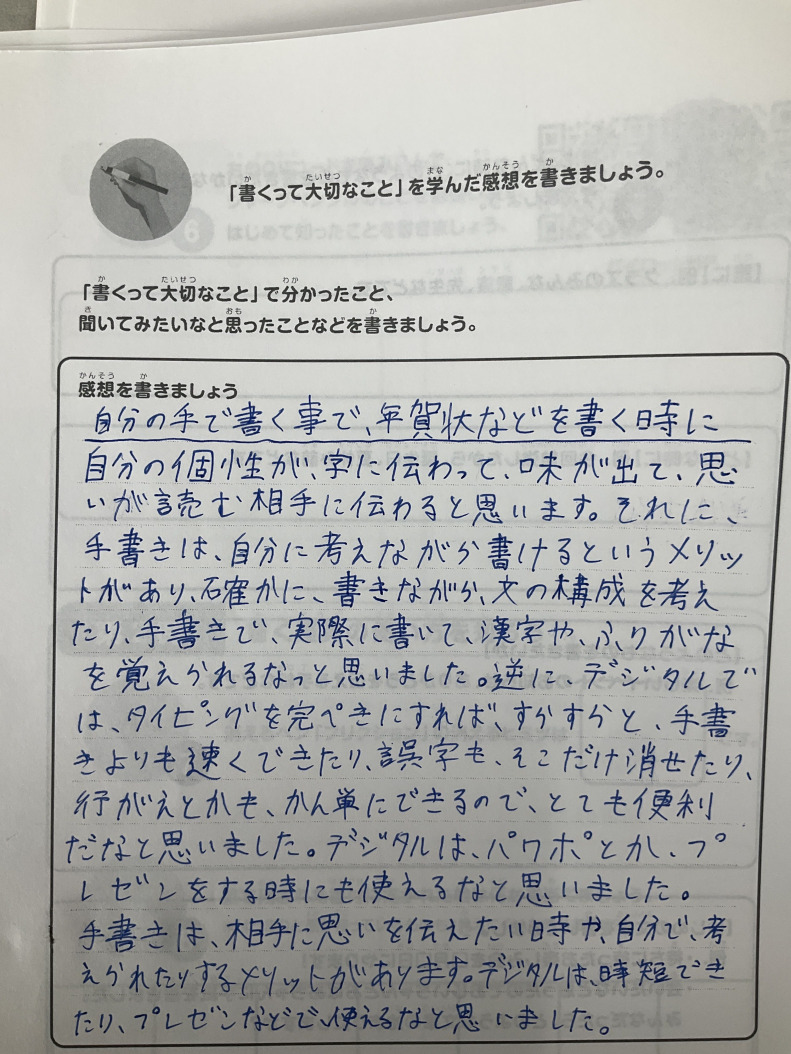 「書くって大切なこと」を学んだ感想を書きましょう。
「書くって大切なこと」で分かったこと、
聞いてみたいなと思ったことなどを書きましょう。
感想を書きましょう
自分の手で書く事で、年賀状などを書く時に
自分の個性が、字に伝わって、味が出て、思
いが読む相手に伝わると思います。それに、
手書きは、自分に考えながら書けるというメリッ
トがあり、確かに、書きながら、文の構成を考え
たり、手書きで、実際に書いて、漢字や、ふりがな
を覚えられるなっと思いました。逆に、デジタルで
は、タイピングを完ぺきにすれば、すらすらと、手書
きよりも速くできたり、誤字も、そこだけ消せたり、
行がえとかも、かん単にできるので、とても便利
だなと思いました。デジタルは、パワポとか、プ
レゼンをする時にも使えるなと思いました。
手書きは、相手に思いを伝えたい時や、自分で、考
えられたりするメリットがあります。デジタルは、時短でき
たり、プレゼンなどで、使えるなと思いました。